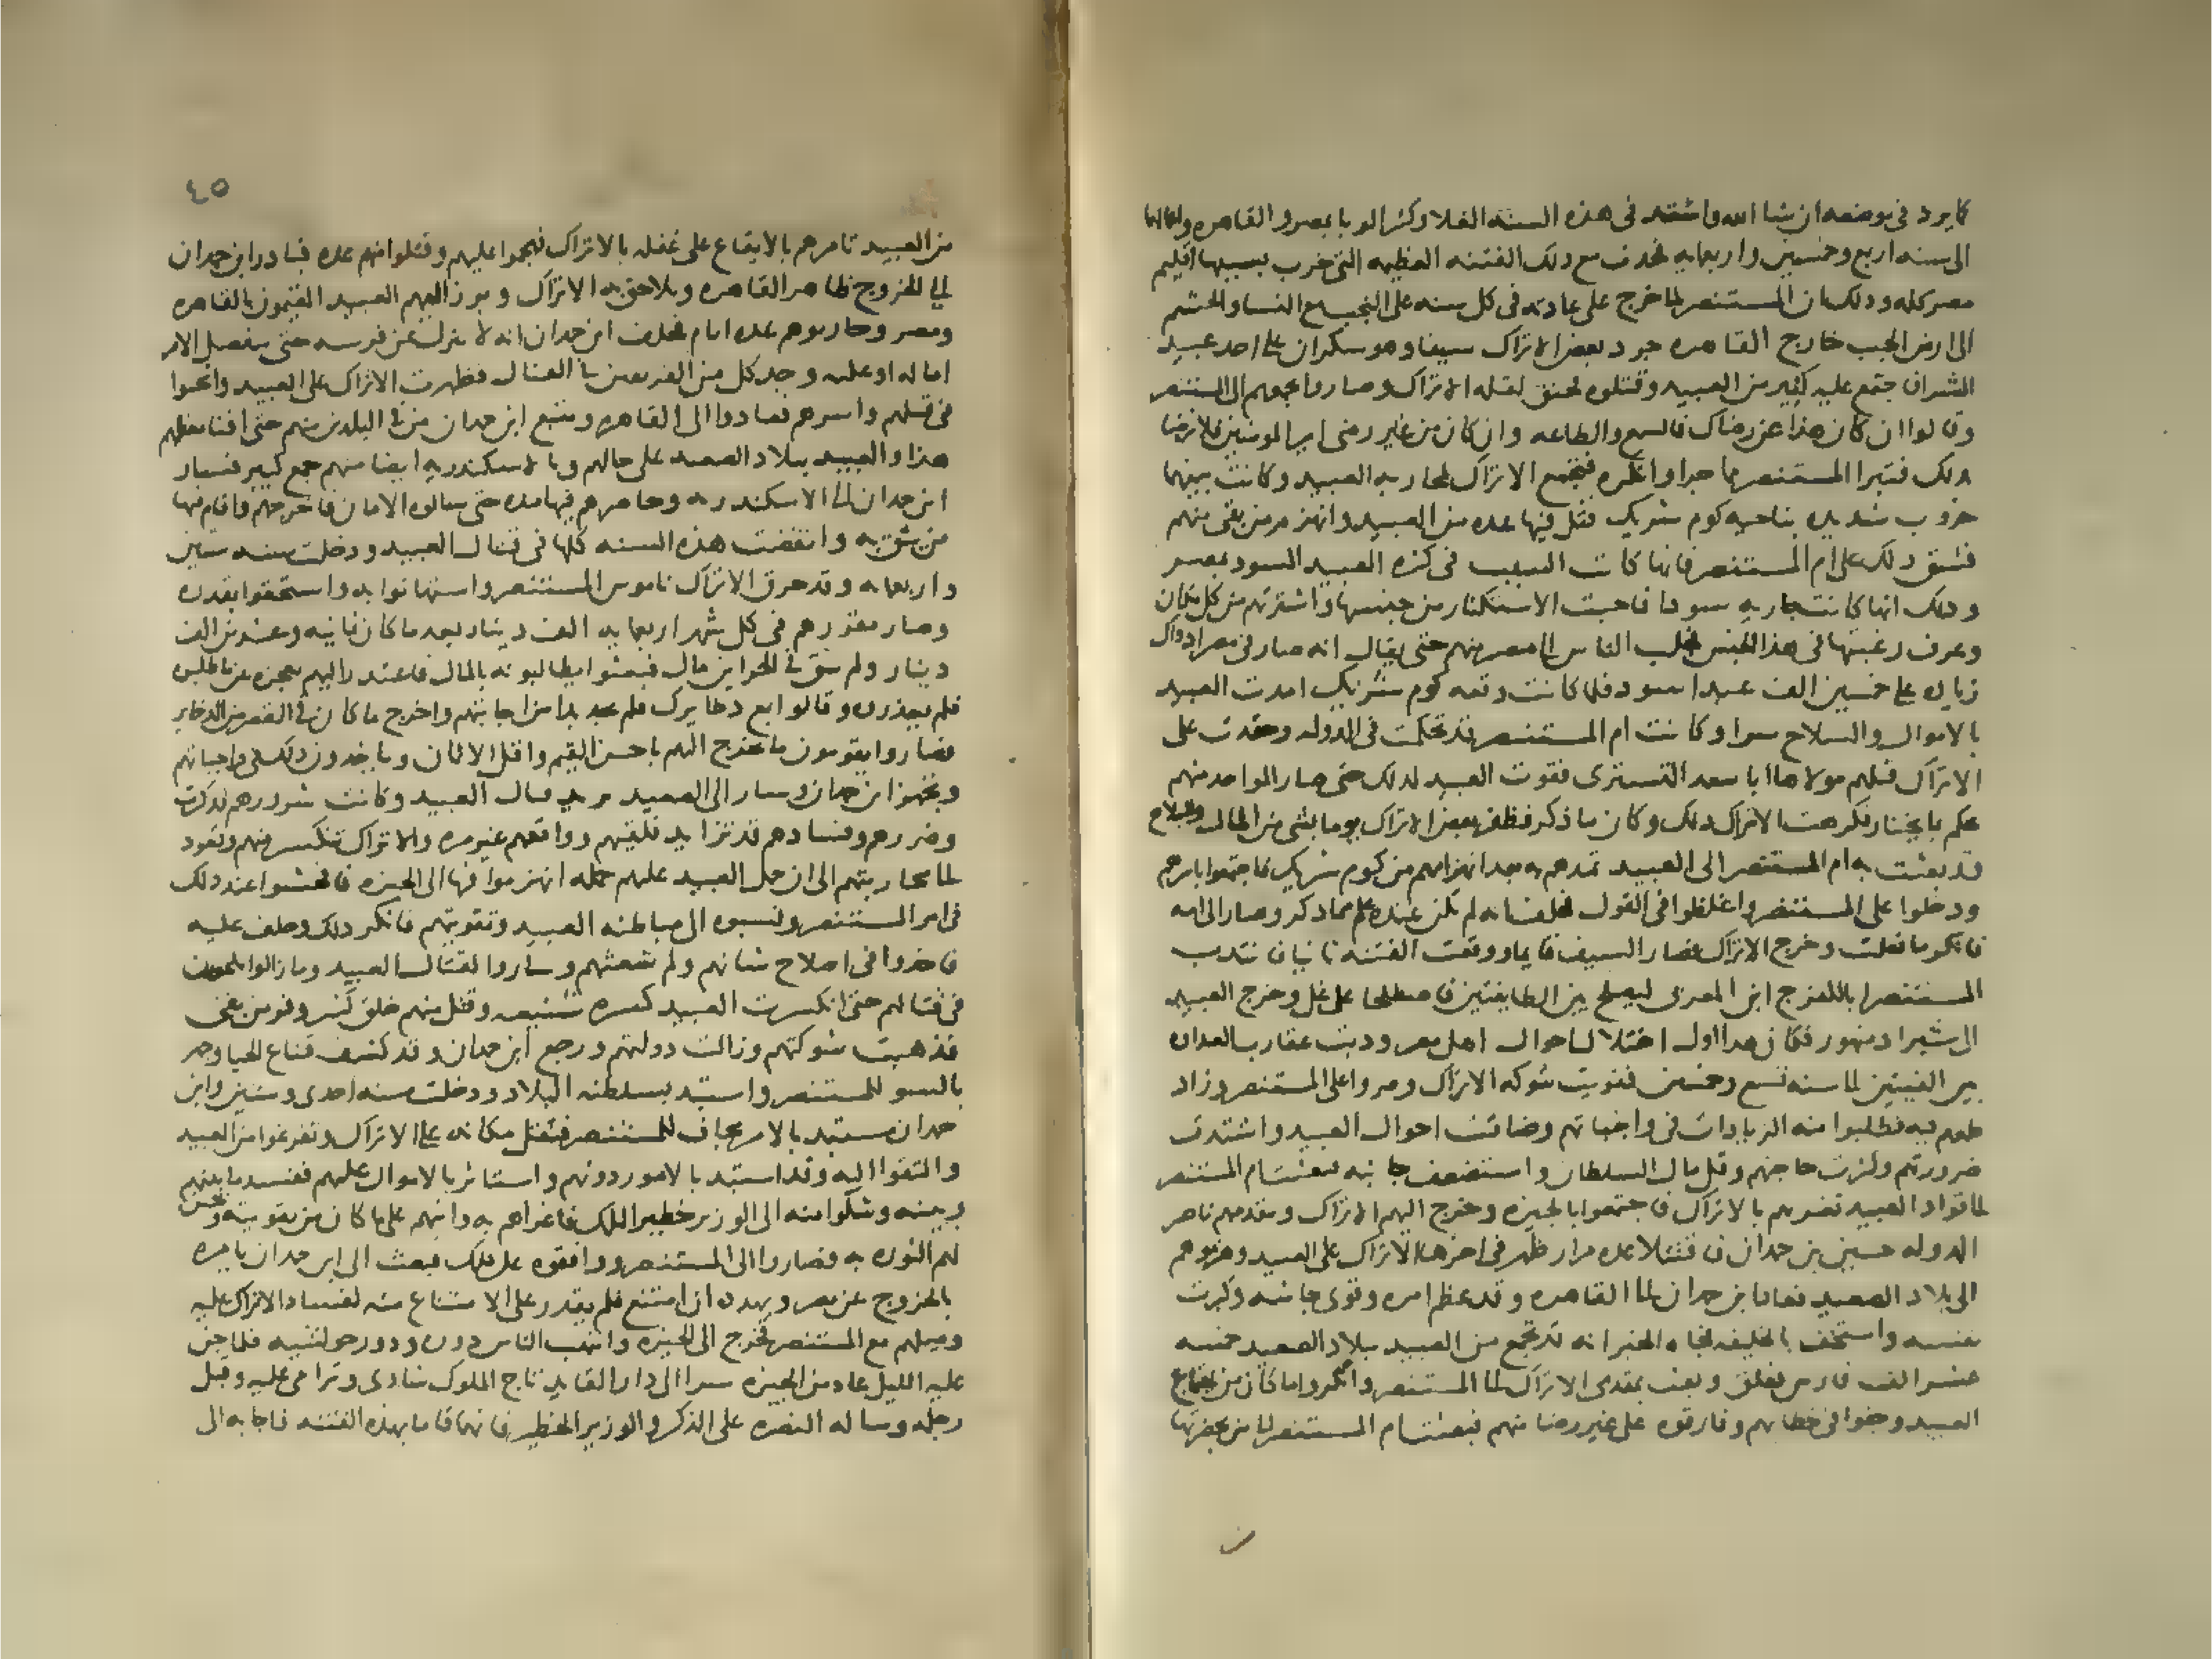 كما يرد في موضعه ان شا الله واشتد في هذه السنة الغلا وكثر الوبا بمصر والقاهره واعمالها
الى سنه اربع وخمسين واربعمايه فحدث مع ذلك الفتنه العظيمه التى خرب بسببها اقليم
مصر كله وذلك ان المستنصر لما خرج على عادته فى كل سنه على النجب مع النسا والحشم
الى ارض الجب خارج القاهره جرد بعض الاتراك سيفا وهو سكران على احد عبيد
الشرا فاجتمع عليه كثير من العبيد وقتلوه فحنق لقتله الاتراك وصاروا بجمعهم الى المستنصر
وقالوا ان كان هذا عن رضاك فالسمع والطاعه وان كان من غير رضى امير المومنين فلا نرضا
بذلك فتبرا المستنصر مما جرا وانكره فتجمع الاتراك لمحاربه العبيد وكانت بينهما
حروب شديده بناحيه كوم شريك قتل فيها عده من العبيد وانهزم من بقى منهم
فشق ذلك على ام المستنصر فانها كانت السبب فى كثره العبيد السود بمصر
وذلك انها كانت جاريه سودا فاحبت الاستكثار من جنسها واشترتهم من كل مكان
وعرف رغبتها فى هذا الجنس فجلب الناس الى مصر منهم حتى يقال انه صار فى مصر اذ ذاك
زياده على خمسين الف عبد اسود فلما كانت وقعه كوم شريك امدت العبيد
بالاموال والسلاح سرا وكانت ام المستنصر قد تحكمت فى الدوله وحقدت على
الاتراك قتلهم مولاها ابا سعد التسترى فقوت العبيد لذلك حتى صار الواحد منهم
يحكم بما يختار فكرهت الاتراك ذلك وكان ما ذكر فظفر بعض الاتراك يوما بشى من المال والسلاح
قد بعثت به ام المستنصر الى العبيد تمدهم به بعد انهزامهم من كوم شريك فاجتمعوا باسرهم
ودخلوا على المستنصر واغلظوا فى القول فحلف انه لم يكن عنده علم بما ذكر وصار الى امه
فانكرت ما فعلت وخرج الاتراك فصار السيف قايما ووقعت الفتنه ثانيا فانتدب
المستنصر ابا الفرج ابن المغربى ليصلح بين الطايفتين فاصطلحا على غل وخرج العبيد
الى شبرا دمنهور فكان هذا اول اختلال احوال اهل مصر ودبت عقارب العداوه
بين الفيتين الى سنه تسع وخمسين فقويت شوكه الاتراك وضروا على المستنصر وزاد
طمعهم فيه فطلبوا منه الزيادات فى واجباتهم وضاقت احوال العبيد واشتدت
ضرورتهم وكثرت حاجتهم وقل مال السلطان واستضعف جانبه فبعثت ام المستنصر
الى قواد العبيد تغريهم بالاتراك فاجتمعوا بالجيزه وخرج اليهم الاتراك ومقدمهم ناصر
الدوله حسين بن حمدان فاقتتلا عده مرار ظهر فى اخرها الاتراك على العبيد وهزموهم
الى بلاد الصعيد فعاد ابن حمدان الى القاهره وقد عظم امره وقوى جانبه وكبرت
نفسه واستخف بالخليفه فجاه الخبر انه قد تجمع من العبيد ببلاد الصعيد خمسه
عشر الف فارس فقلق وبعث بمقدمى الاتراك الى المستنصر وانكروا ما كان من اجتماع
العبيد وجفوا فى خطابهم وفارقوه على غير رضا منهم فبعثت ام المستنصر الى من بحضرتها
٤٥
من العبيد تامرهم بالايقاع على غفله بالاتراك فهجموا عليهم وقتلوا منهم عده فبادر ابن حمدان
الى الخروج ظاهر القاهره وتلاحق به الاتراك وبرز اليهم العبيد المقيمون بالقاهره
ومصر وحاربوهم عده ايام فحلف ابن حمدان انه لا ينزل عن فرسه حتى ينفصل الامر
اما له او عليه وجد كل من الفريقين فى القتال فظهرت الاتراك على العبيد واثخنوا
فى قتلهم واسرهم فعادوا الى القاهره وتتبع ابن حمدان من فى البلد منهم حتى افنا معظمهم
هذا والعبيد ببلاد الصعيد على حالهم وبالاسكندريه ايضا منهم جمع كبير فسار
ابن حمدان الى الاسكندريه وحاصرهم فيها مده حتى سالوه الامان فاخرجهم واقام فيها
من يثق به وانقضت هذه السنه كلها فى قتال العبيد ودخلت سنه ستين
واربعمايه وقد خرق الاتراك ناموس المستنصر واستهانوا به واستخفوا بقدره
وصار مقررهم فى كل شهر اربعمايه الف دينار بعد ما كان ثمانيه وعشرين الف
دينار ولم يبق فى الخزاين مال فبعثوا يطالبونه بالمال فاعتذر اليهم بعجزه عما طلبوه
فلم يعذروه وقالوا بع ذخايرك فلم يجد بدا من اجابتهم واخرج ما كان فى القصر من الذخاير
فصاروا يقومون ما يخرج اليهم باحسن القيم واقل الاثمان وياخذون ذلك فى واجباتهم
وتجهز ابن حمدان وسار الى الصعيد يريد قتال العبيد وكانت شرورهم قد كثرت
وضررهم وفسادهم قد تزايد فلقيهم وواقعهم غير مره والاتراك تنكسر منهم وتعود
الى محاربتهم الى ان حمل العبيد عليهم حمله انهزموا فيها الى الجيزه فافحشوا عند ذلك
فى امر المستنصر ونسبوه الى مباطنه العبيد وتقويتهم فانكر ذلك وحلف عليه
فاخذوا فى اصلاح شانهم ولم شعثهم وساروا لقتال العبيد وما زالوا يلحون
فى قتالهم حتى انكسرت العبيد كسره شنيعه وقتل منهم خلق كثير وفر من بقى
فذهبت شوكتهم وزالت دولتهم ورجع ابن حمدان وقد كشف قناع الحيا وجهر
بالسو للمستنصر واستبد بسلطنه البلاد ودخلت سنه احدى وستين وابن
حمدان مستبد بالامر مجاف للمستنصر فثقل مكانه على الاتراك وتفرغوا من العبيد
والتفتوا اليه وقد استبد بالامور دونهم واستاثر بالاموال عليهم ففسد ما بينهم
وبينه وشكوا منه الى الوزير خطير الملك فاغراهم به ولامهم على ما كان من تقويته وحسن
لهم الثوره به فصاروا الى المستنصر ووافقوه على ذلك فبعث الى ابن حمدان يامره
بالخروج عن مصر ويهدده ان امتنع فلم يقدر على الامتناع منه لفساد الاتراك عليه
وميلهم مع المستنصر فخرج الى الجيزه وانتهب الناس دوره ودور حواشيه فلما جن
عليه الليل عاد من الجيزه سرا الى دار القايد تاج الملوك شادى وترامى عليه وقبل
رجله وساله النصره على الذكر والوزير الخطير فانهما قاما بهذه الفتنه فاجابه الى